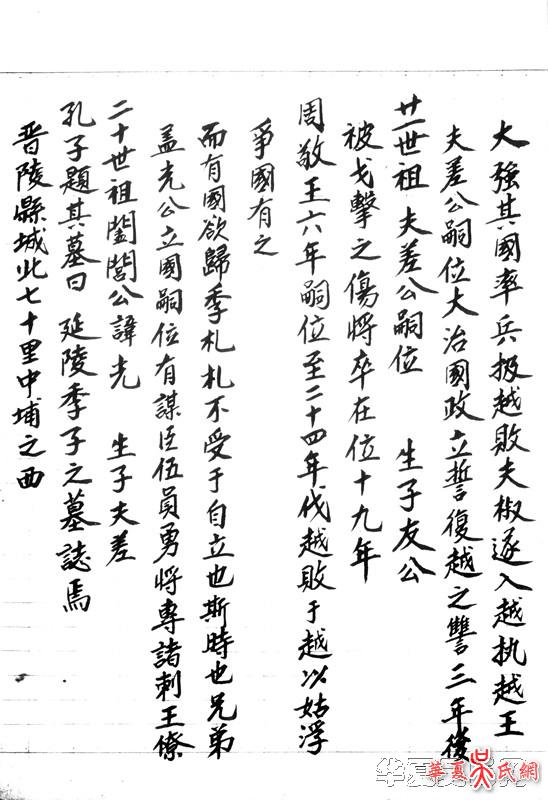 晋陵縣城北七十里中埔之西
孔子題其墓曰 延陵季子之墓誌焉
二十世祖闔閭公諱光 生子夫差
盖光公立國嗣位有謀臣伍員勇將專諸刺王僚
而有國欲歸季札札不受于自立也斯時也兄弟
爭國有之
周敬王六年嗣位至二十四年伐越敗于越以姑浮
被戈擊之傷將卒在位十九年
廿一世祖夫差公嗣位 生子友公
夫差公嗣位大治國政立誓復越之讐三年後
大強其國率兵扱越敗夫椒遂入越执越王
華夏吴氏網